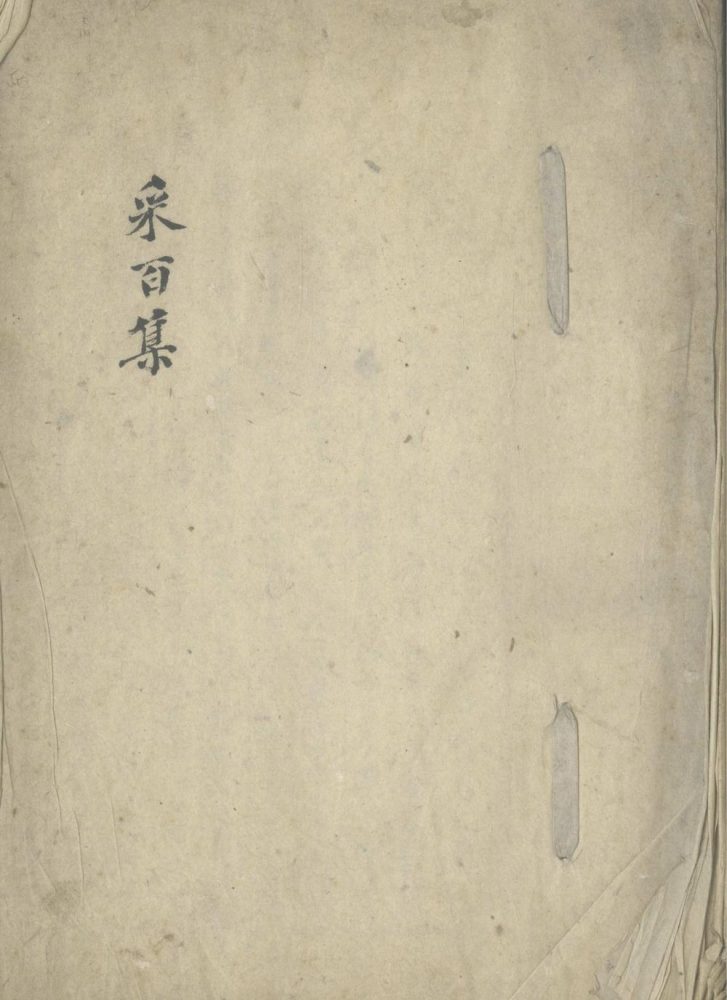 采百集